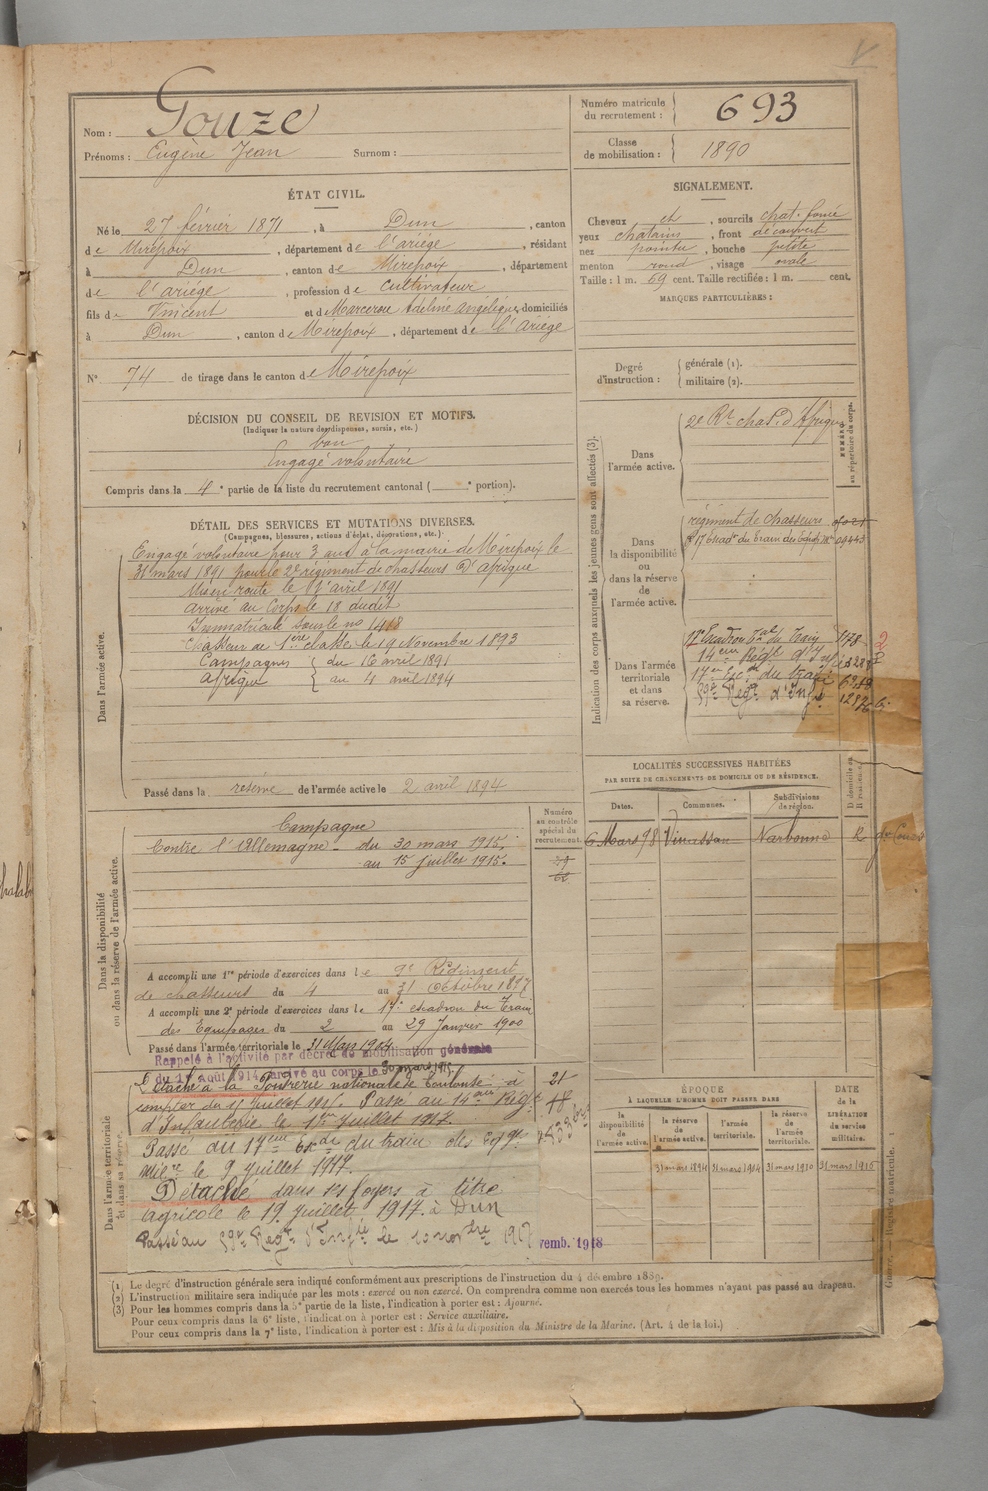 Nom : Gouze
Prénoms : Eugène Jean Surnom :
Numéro matricule du recrutement : 693
Classe de mobilisation : 1890
ÉTAT CIVIL.
Né le 27 février 1871, à Dun, canton
de Mirepoix, département de l'ariège, résidant
à Dun, canton de Mirepoix, département
de l'ariége, profession de cultivateur
fils de Vincent et de Marcerou Adeline Angélique, domiciliés
à Dun, canton de Mirepoix, département de l'ariége
N° 74 de tirage dans le canton de Mirepoix
SIGNALEMENT.
Cheveux et, sourcils chat. foncé
yeux chatains, front découvert
nez pointu, bouche petite
menton rond, visage ovale
Taille : 1 m. 69 cent. Taille rectifiée : 1 m. cent.
MARQUES PARTICULIÈRES :
Degré d'instruction : générale (1).
militaire (2).
DÉCISION DU CONSEIL DE REVISION ET MOTIFS.
(Indiquer la nature des dispenses, sursis, etc.)
bon
Engagé volontaire
Compris dans la 4e partie de la liste du recrutement cantonal ( e portion).
DÉTAIL DES SERVICES ET MUTATIONS DIVERSES.
(Campagnes, blessures, actions d'éclat, décorations, etc.)
Dans l'armée active.
Engagé volontaire pour 3 ans à la mairie de Mirepoix le
31 mars 1891 pour le 2e régiment de chasseurs d'afrique
Mis en route le 1er avril 1891
arrivé au Corps le 18 dudit
Immatriculé sous le no 1418
Chasseur de 1ère classe le 19 Novembre 1893
Campagnes du 16 avril 1891
afrique au 4 avril 1894
Passé dans la réserve de l'armée active le 2 avril 1894
Indication des corps auxquels les jeunes gens sont affectés (3).
NUMÉRO au répertoire du corps.
Dans l'armée active.
2e Rt chas. d'Afrique
Dans la disponibilité ou dans la réserve de l'armée active.
régiment de chasseurs
17 Escad. du Train des Equip. Mres 04443
Dans l'armée territoriale et dans sa réserve.
17e Escadron Tal du Train 1178
14eme Régt d'Inf
17e Esc. du train
Regt d'Infie
LOCALITÉS SUCCESSIVES HABITÉES
PAR SUITE DE CHANGEMENTS DE DOMICILE OU DE RÉSIDENCE.
Dates. Communes. Subdivisions de région. D domicile ou R résidence.
6 Mars 98 Vinassan Narbonne R
Dans la disponibilité ou dans la réserve de l'armée active.
Numéro au contrôle spécial du recrutement.
Campagne
Contre l'Allemagne du 30 mars 1915.
au 15 juillet 1915.
A accompli une 1re période d'exercices dans le 9e Régiment
de chasseurs du 4 au 31 Octobre 1897
A accompli une 2e période d'exercices dans le 17e escadron du Train
des Equipages du 2 au 29 Janvier 1900
Passé dans l'armée territoriale le 31 Mars 1904
Dans l'armée territoriale et dans sa réserve.
Rappelé à l'activité par décret de mobilisation générale
du 1er Août 1914, arrivé au corps le 30 mars 1915
Détaché à la Poudrerie nationale de Toulouse à
compter du 15 juillet 1915. Passé au 14eme Régt
d'Infanterie le 1er juillet 1917.
Passé au 17eme Escdr du train des Eqpges
Milre le 9 juillet 1917.
Détaché dans ses foyers à titre
agricole le 19 juillet 1917 à Dun
Passé au Regt d'Infie le 10 novbre 1917
vemb. 1918
21
ÉPOQUE
À LAQUELLE L'HOMME DOIT PASSER DANS
la disponibilité de l'armée active.
la réserve de l'armée active.
l'armée territoriale.
la réserve de l'armée territoriale.
DATE de la LIBÉRATION du service militaire.
31 mars 1894 31 mars 1904 31 mars 1910 31 mars 1916
Guerre. — Registre matricule.
(1) Le degré d'instruction générale sera indiqué conformément aux prescriptions de l'instruction du 4 décembre 1889.
(2) L'instruction militaire sera indiquée par les mots : exercé ou non exercé. On comprendra comme non exercés tous les hommes n'ayant pas passé au drapeau.
(3) Pour les hommes compris dans la 5e partie de la liste, l'indication à porter est : Ajourné.
Pour ceux compris dans la 6e liste, l'indication à porter est : Service auxiliaire.
Pour ceux compris dans la 7e liste, l'indication à porter est : Mis à la disposition du Ministre de la Marine. (Art. 4 de la loi.)